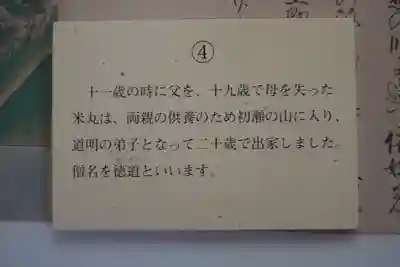 ④
十一歳の時に父を、十九歳で母を失った
米丸は、両親の供養のため初瀬の山に入り、
道明の弟子となって二十歳で出家しました。
僧名を徳道といいます。